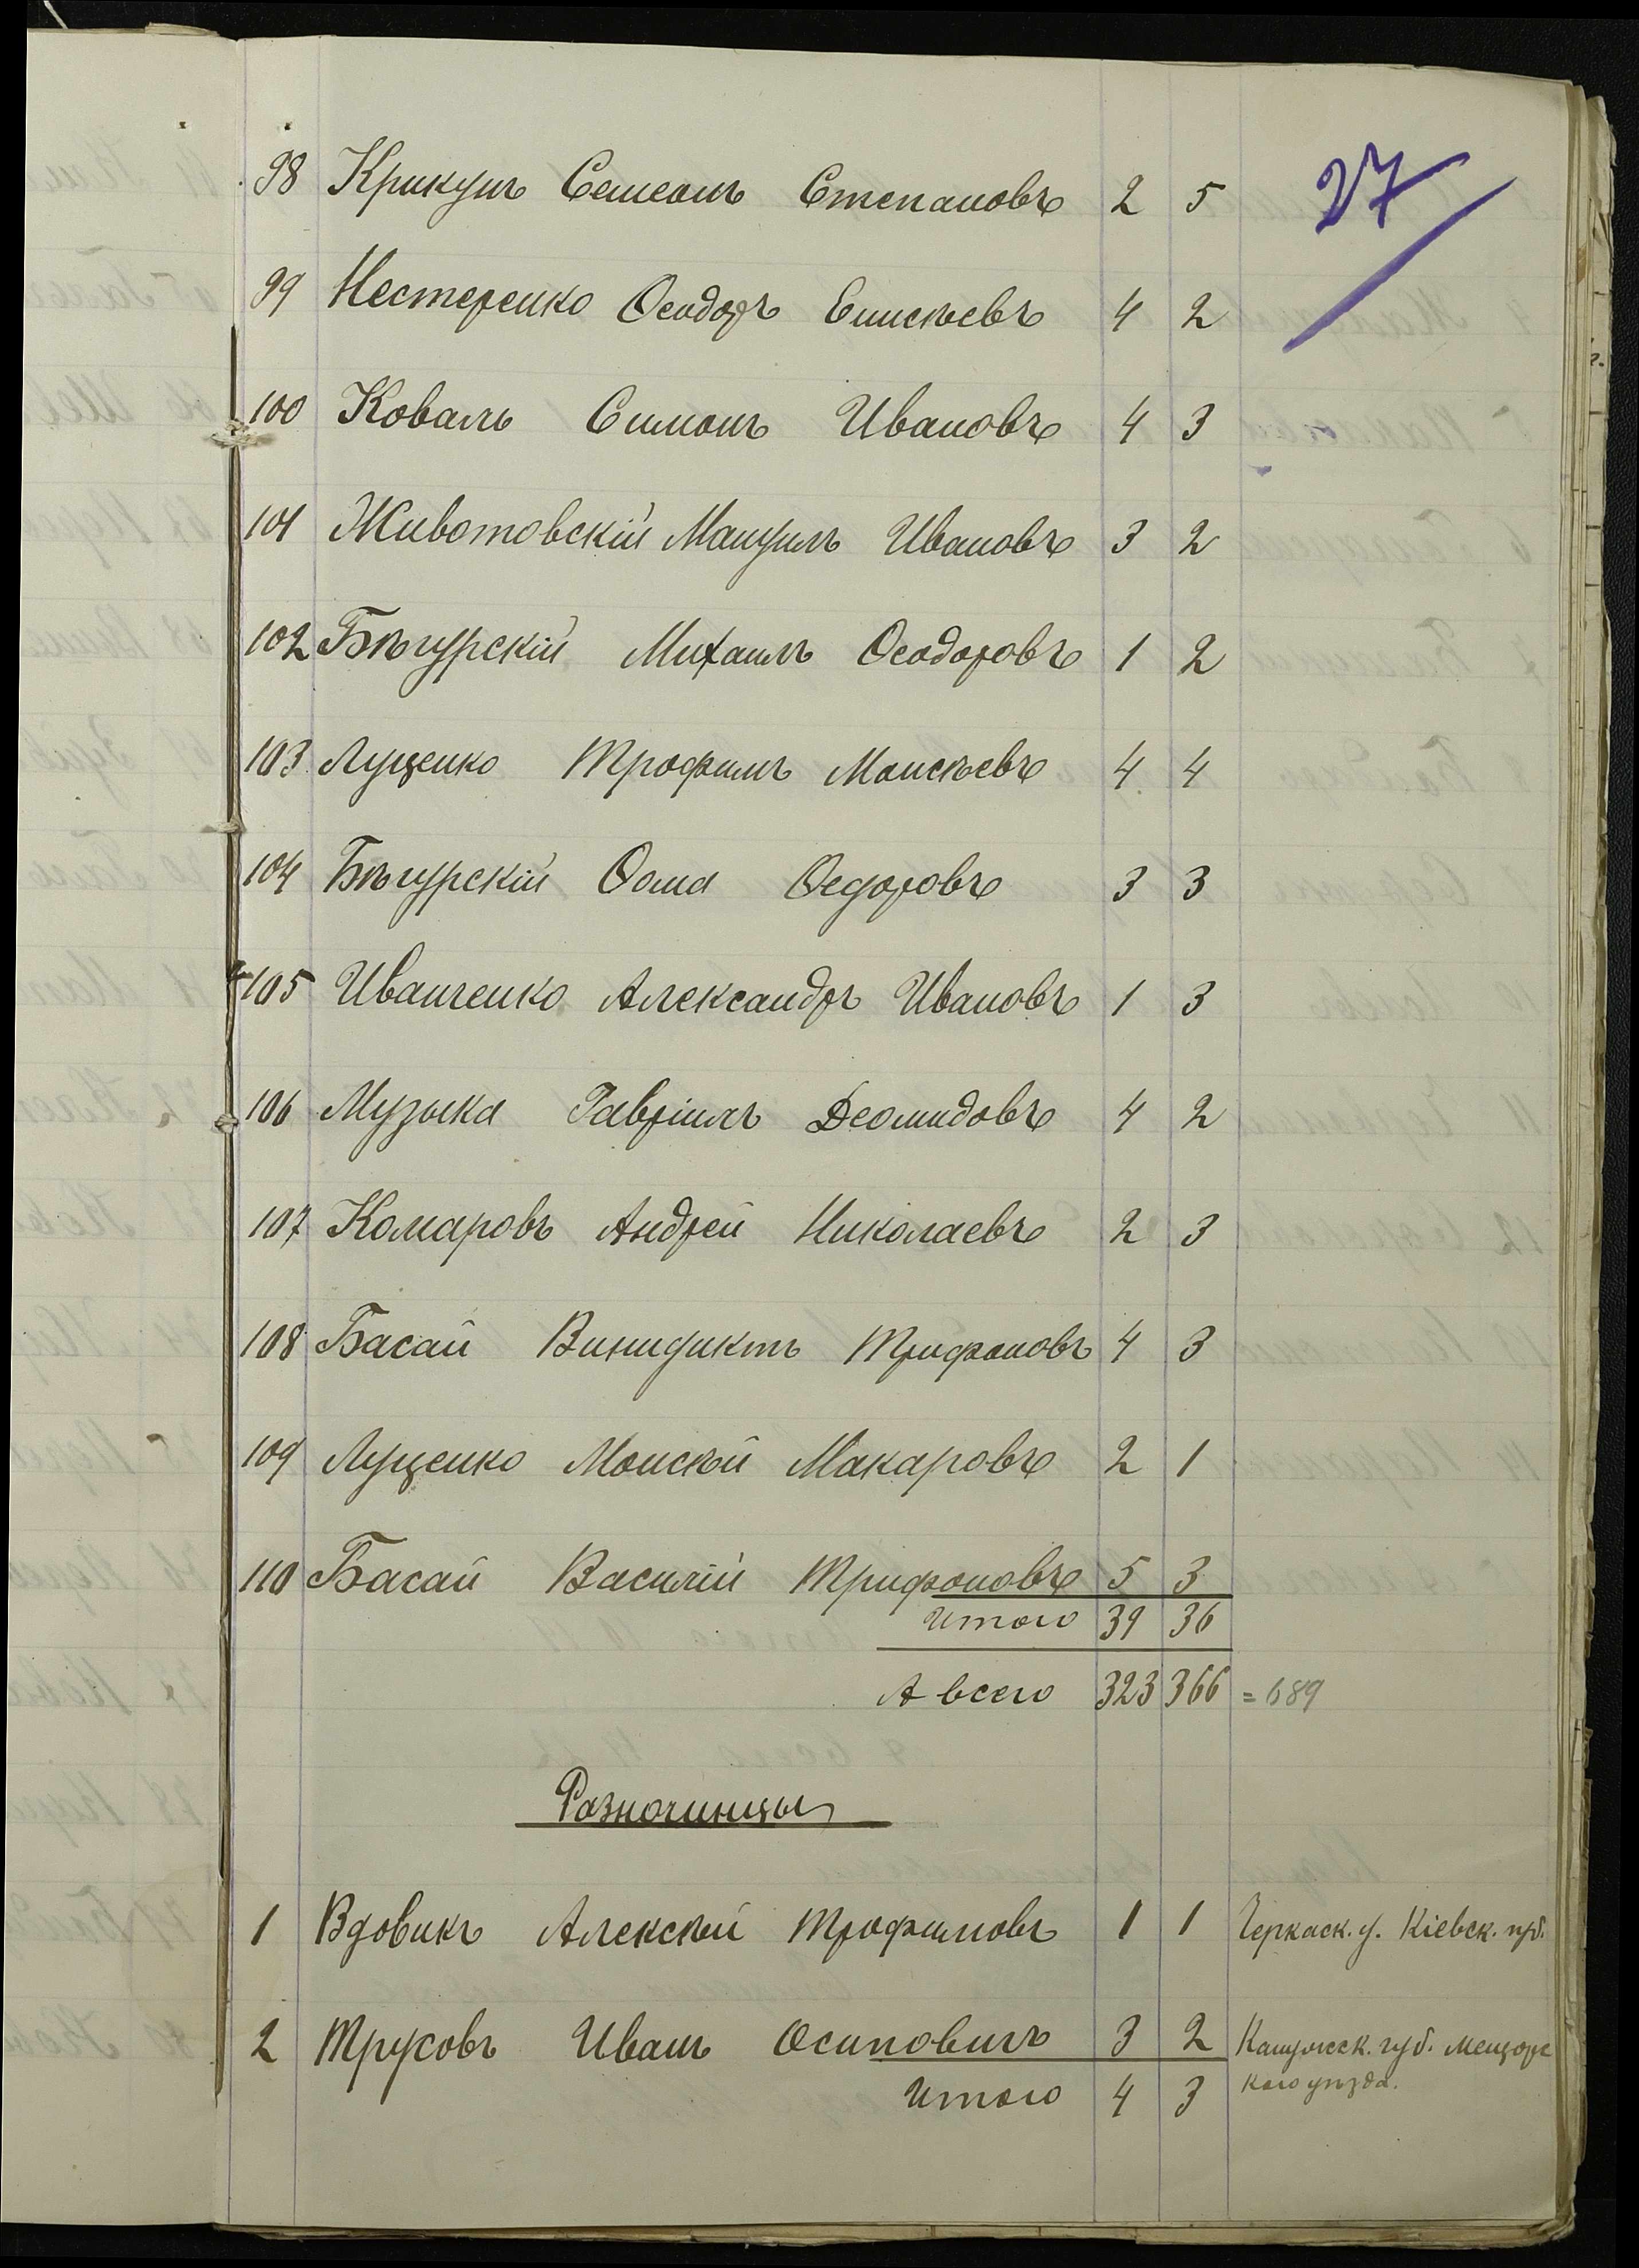 27
98 Крикунъ Семеонъ Степановъ 2 5
99 Нестеренко Ѳеодоръ Елисѣевъ 4 2
100 Коваль Симонъ Ивановъ 4 3
101 Животовскій Мануилъ Ивановъ 3 2
102 Бѣгурскій Михаилъ Ѳеодоровъ 1 2
103 Луценко Трофимъ Моисѣевъ 4 4
104 Бѣгурскій Ѳома Ѳедоровъ 3 3
105 Иванченко Александръ Ивановъ 1 3
106 Музыка Гавріилъ Деомидовъ 4 2
107 Комаровъ Андрей Николаевъ 2 3
108 Басай Винидиктъ Трифоновъ 4 3
109 Луценко Моисѣй Макаровъ 2 1
110 Басай Василій Трифоновъ 5 3
Итого 39 36
А всего 323 366 = 689
Разночинцы
1 Вдовикъ Алексѣй Трофимовъ 1 1 Черкаск. у. Кіевск. губ.
2 Трусовъ Иванъ Осиповичъ 3 2 Калужск. губ. Мещовс
каго уѣзда.
Итого 4 3